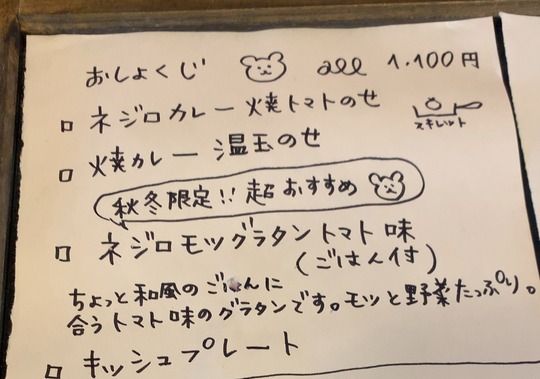 おしょくじ all 1.100円
ネジロカレー 焼トマトのせ
スキレット
焼カレー 温玉のせ
秋冬限定!! 超おすすめ
ネジロモツグラタントマト味
(ごはん付)
ちょっと和風のごはんに
合うトマト味のグラタンです。モツと野菜たっぷり。
キッシュプレート